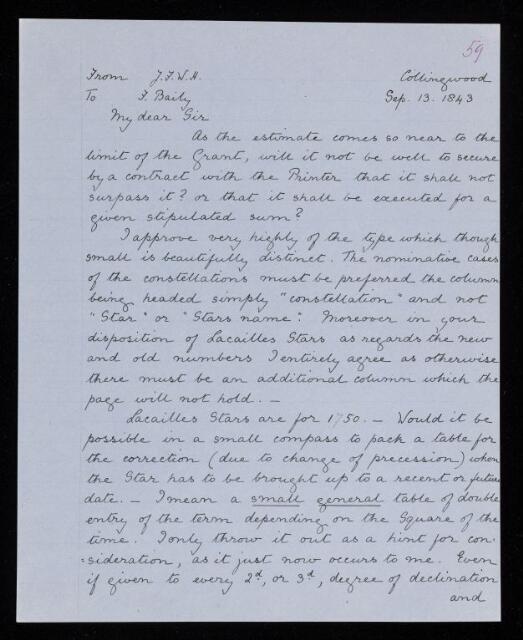 59
From J.F.W.H. Collingwood
To F. Baily Sep. 13. 1843
My dear Sir
As the estimate comes so near to the
limit of the Grant, will it not be well to secure
by a contract with the Printer that it shall not
surpass it? or that it shall be executed for a
given stipulated sum?
I approve very highly of the type which though
small is beautifully distinct. The nominative cases
of the constellations must be preferred the column
being headed simply "constellation" and not
"Star" or "Stars name". Moreover in your
disposition of Lacailles Stars as regards the new
and old numbers I entirely agree as otherwise
there must be an additional column which the
page will not hold. —
Lacailles Stars are for 1750. — Would it be
possible in a small compass to pack a table for
the correction (due to change of precession) when
the Star has to be brought up to a recent or future
date. — I mean a small general table of double
entry of the term depending on the Square of the
time. I only throw it out as a hint for con-
=sideration, as it just now occurs to me. Even
if given to every 2d, or 3d, degree of declination
and